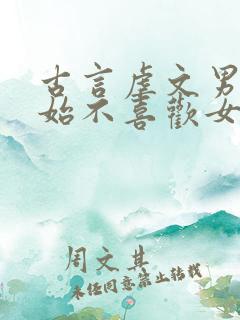 古言虐文男
始不喜歡女
周文其
未经同意禁止转载